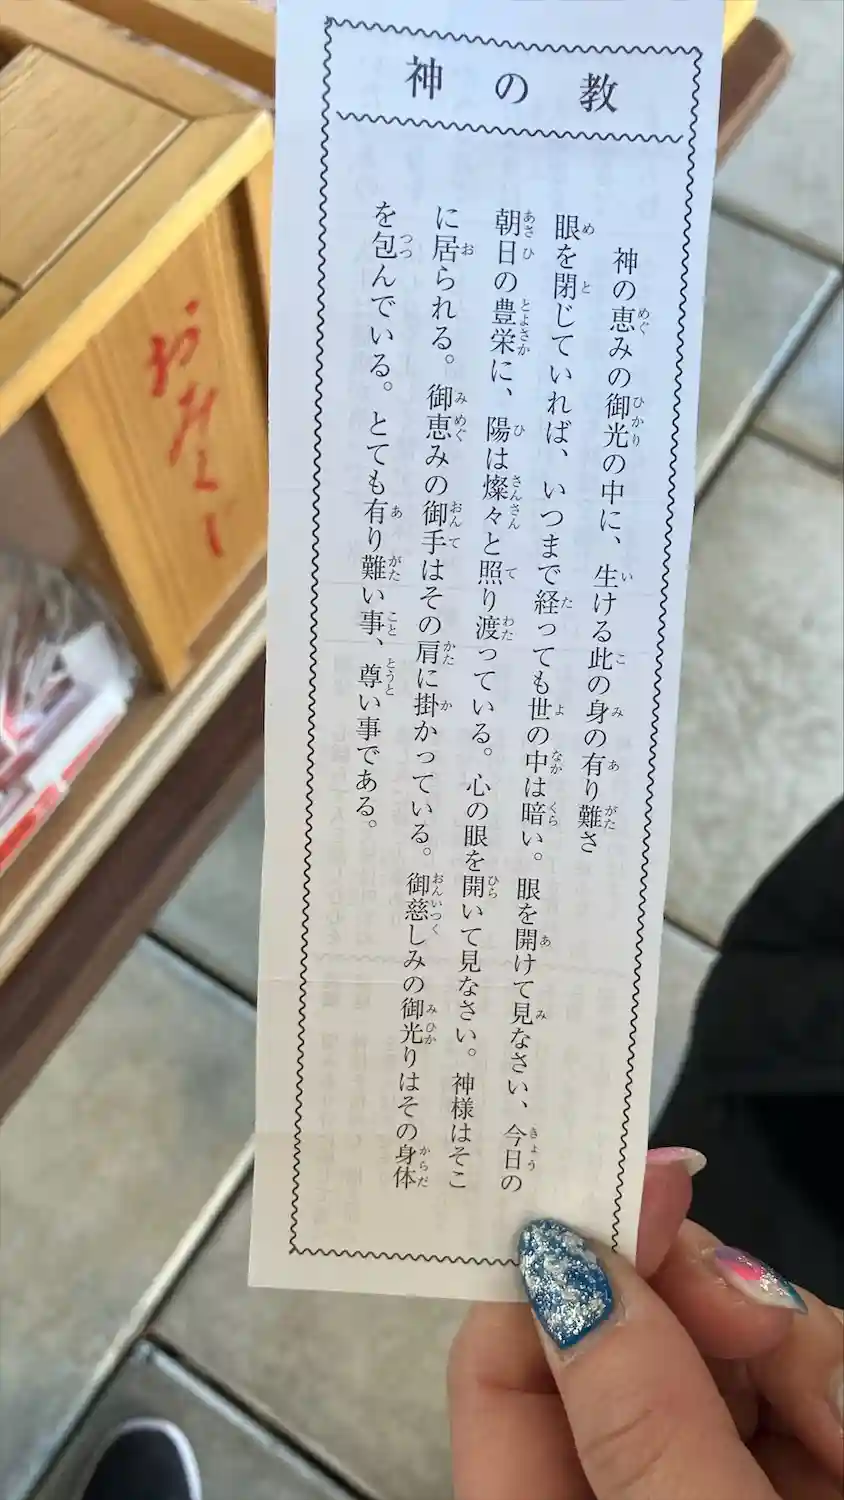 神の教
神の恵みの御光の中に、生ける此の身の有り難さ
眼を閉じていれば、いつまで経っても世の中は暗い。眼を開けて見なさい、今日の
朝日の豊栄に、陽は燦々と照り渡っている。心の眼を開いて見なさい。神様はそこ
に居られる。御恵みの御手はその肩に掛かっている。御慈しみの御光りはその身体
を包んでいる。とても有り難い事、尊い事である。
おみくじ